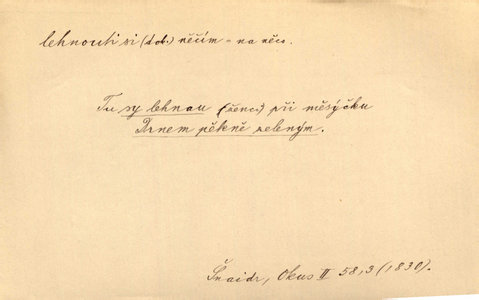 lehnouti si (dok.) něčím = na něco.
Tu sy lehnau (ženci) při měsýčku
Drnem pěkně zeleným.
Šnaidr, Okus II 58,3 (1830).